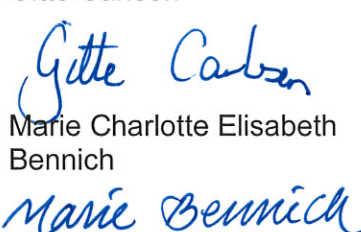 Gitte Carlsen
Marie Charlotte Elisabeth
Bennich
Marie Bennich